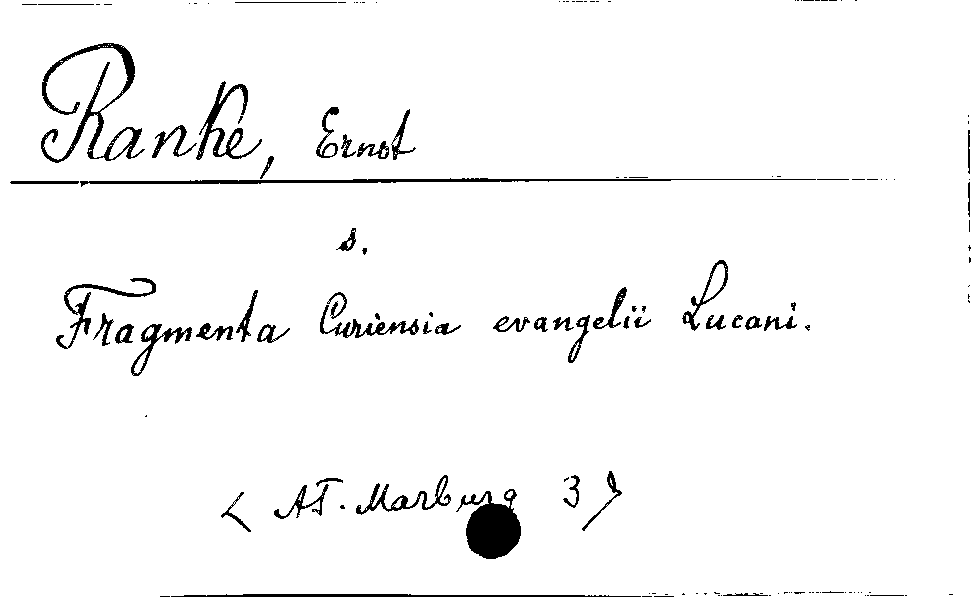 Ranke, Ernst
s.
Fragmenta Curiensia evangelii Lucani.
< AT. Marburg 3 >